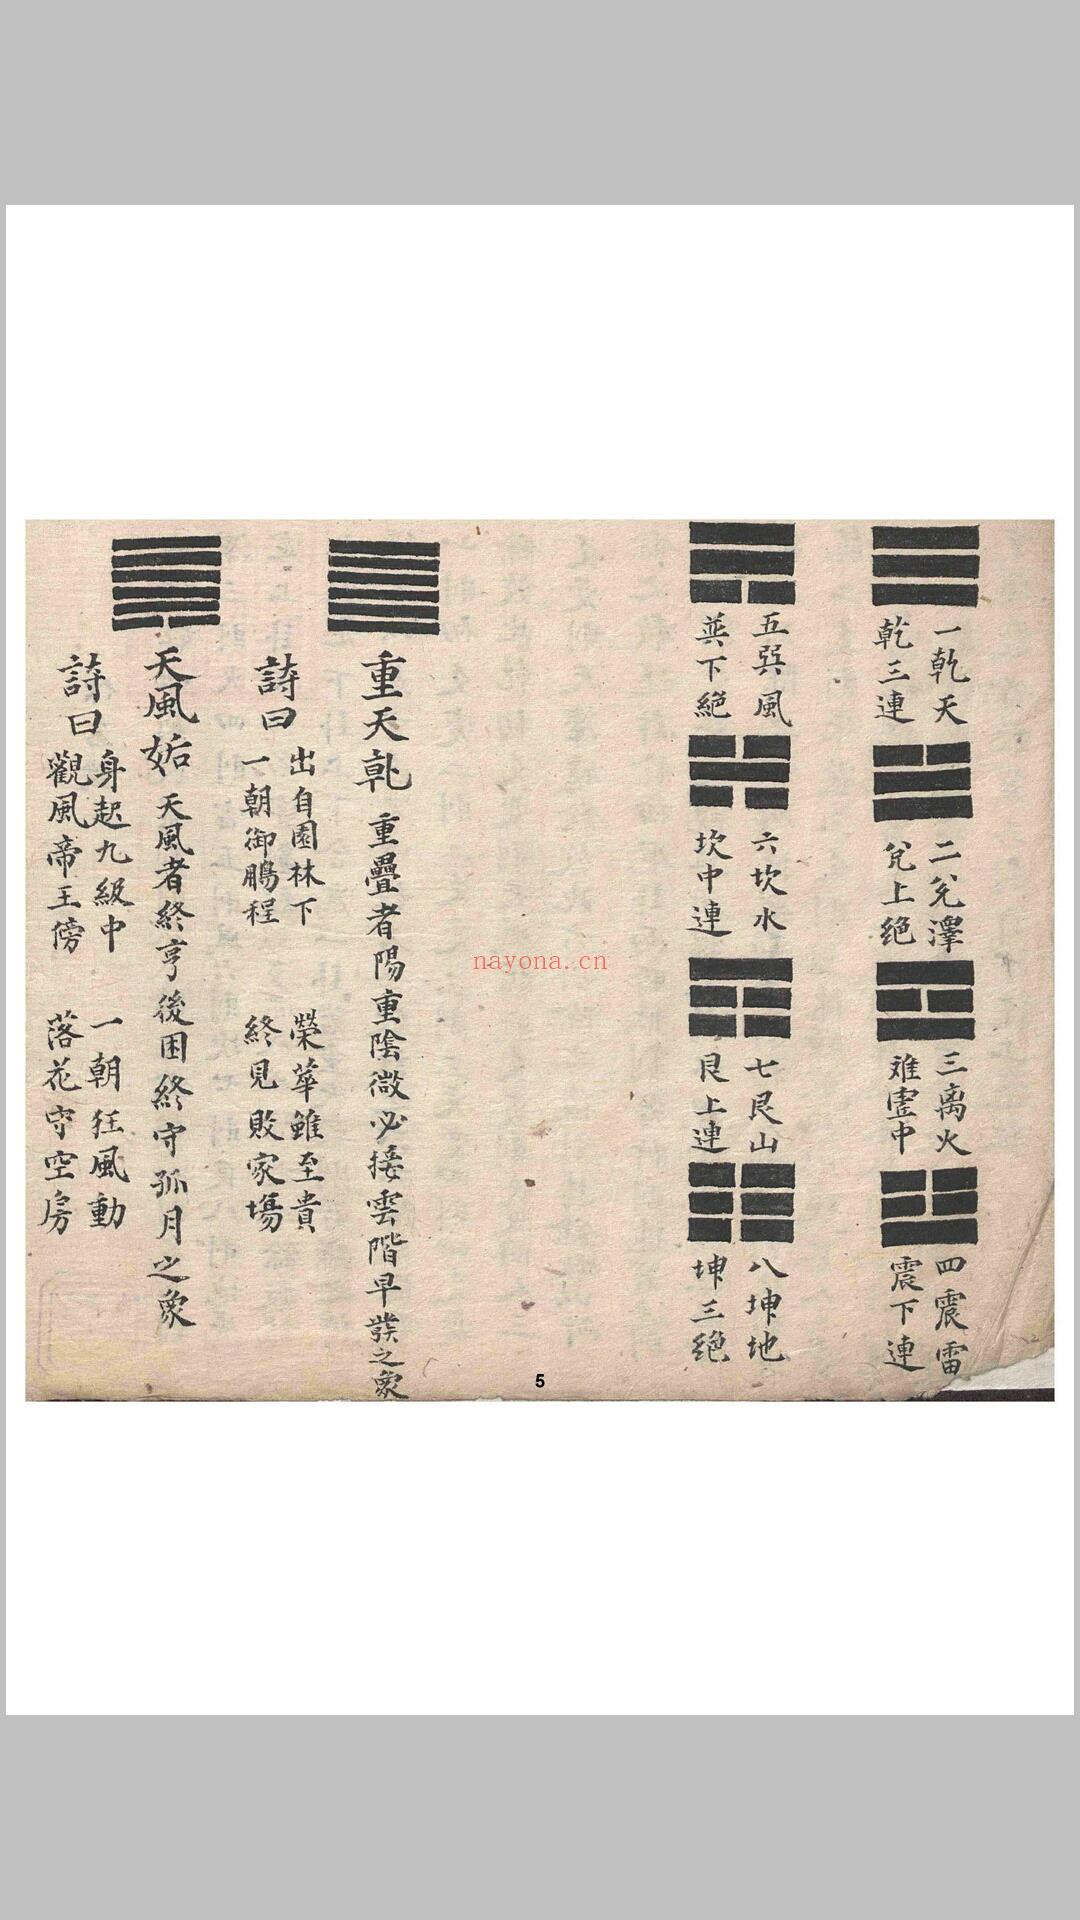 一乾天
乾三連
二兌澤
兌上絶
三离火
难虛中
四震雷
震下連
五巽風
巽下絕
六坎水
坎中連
七艮山
艮上連
八坤地
坤三絶
重天乹 重疊者陽重陰微必接雲階早發之象
詩曰
出自園林下 榮華雖至貴
一朝御鵬程 終見敗家場
天風姤 天風者終亨後困終守孤月之象
詩曰
身起九級中 一朝狂風動
觀風帝王傍 落花守空房
nayona.cn
5